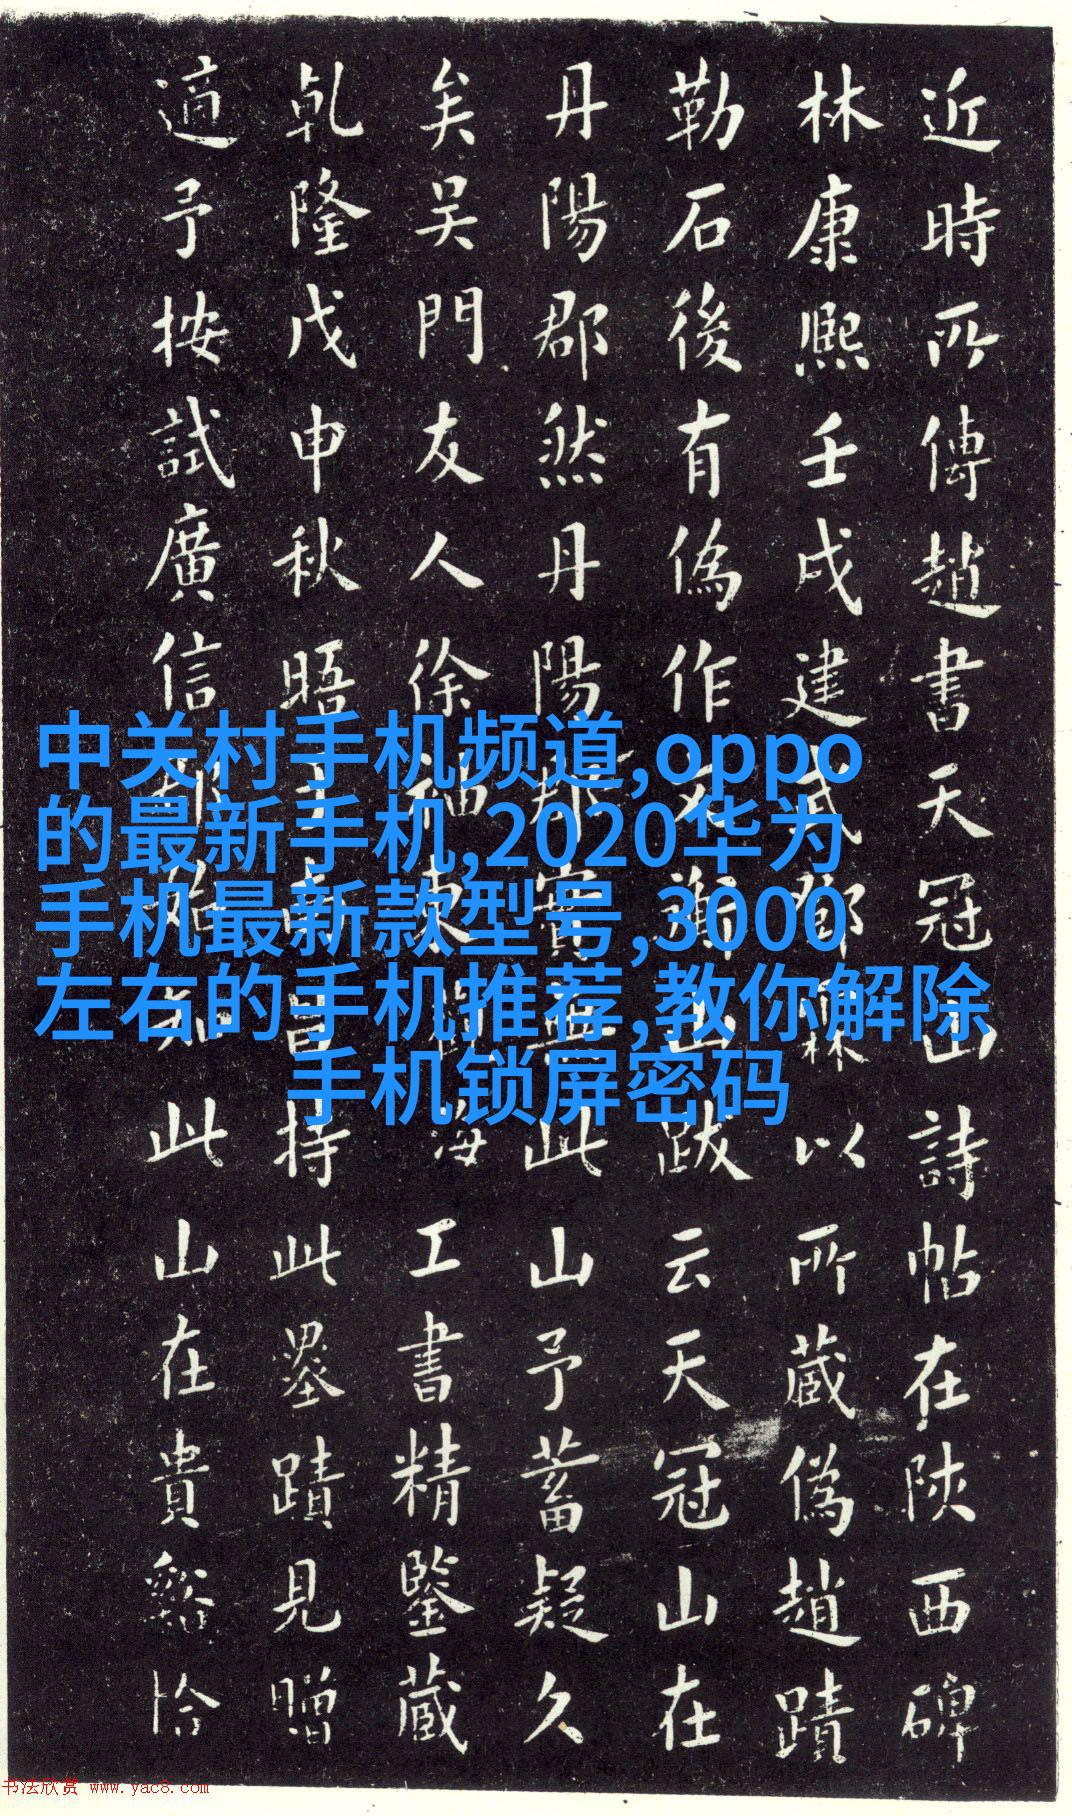 近時所傳趙書天冠山詩帖在陝西碑
林康熙壬戌建武鄧霖以所藏偽趙蹟
勒石後有偽作文衡山跋云天冠山在
丹陽郡然丹陽郡實無此山予蓄疑久
矣吳門友人徐東海工書精鑒藏
乾隆戊申秋晤于南昌持此墨蹟見贈
適予按試廣信始知此山在貴谿恰
中关村手机频道,oppo
的最新手机,2020华为
手机最新款型号,3000
左右的手机推荐,教你解除
手机锁屏密码
书法欣赏 www.yac8.com